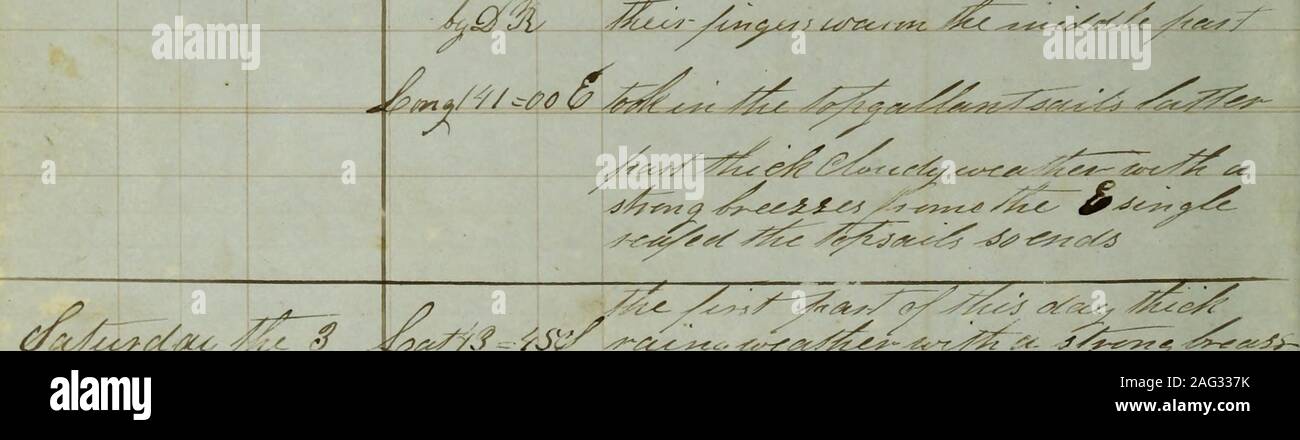 by D R their fingers warm the middle part
Long 141=00 E took in the topgallant sails latter
part thick cloudy weather with a
strong breezzes frome the E single
reafed the topsails so ends
the first part of this day thick
Saturday the 3 Lat 43=45 S rainy weather with a strong breazz
a
alamy
Image ID: 2AG337K
www.alamy.com